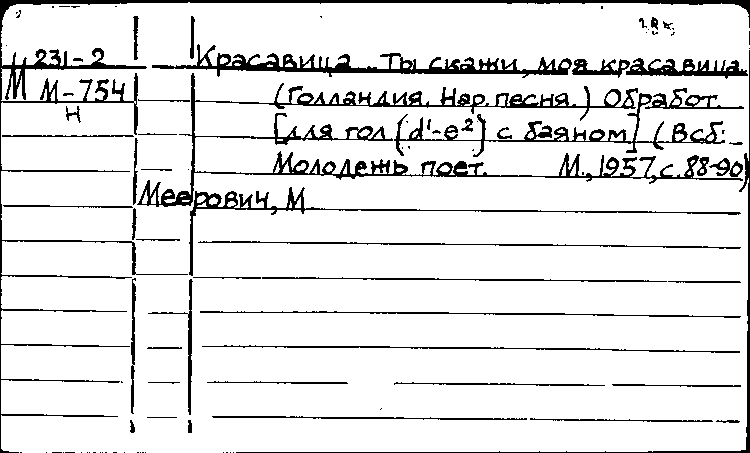 М 231-2
М-754
н
Красавица. Ты скажи, моя красавица.
(Голландия. Нар. песня.) Обработ.
[для гол (d¹-e²) с баяном] (В сб:
Молодежь поет. М., 1957, с. 88-90)
Меерович, М.